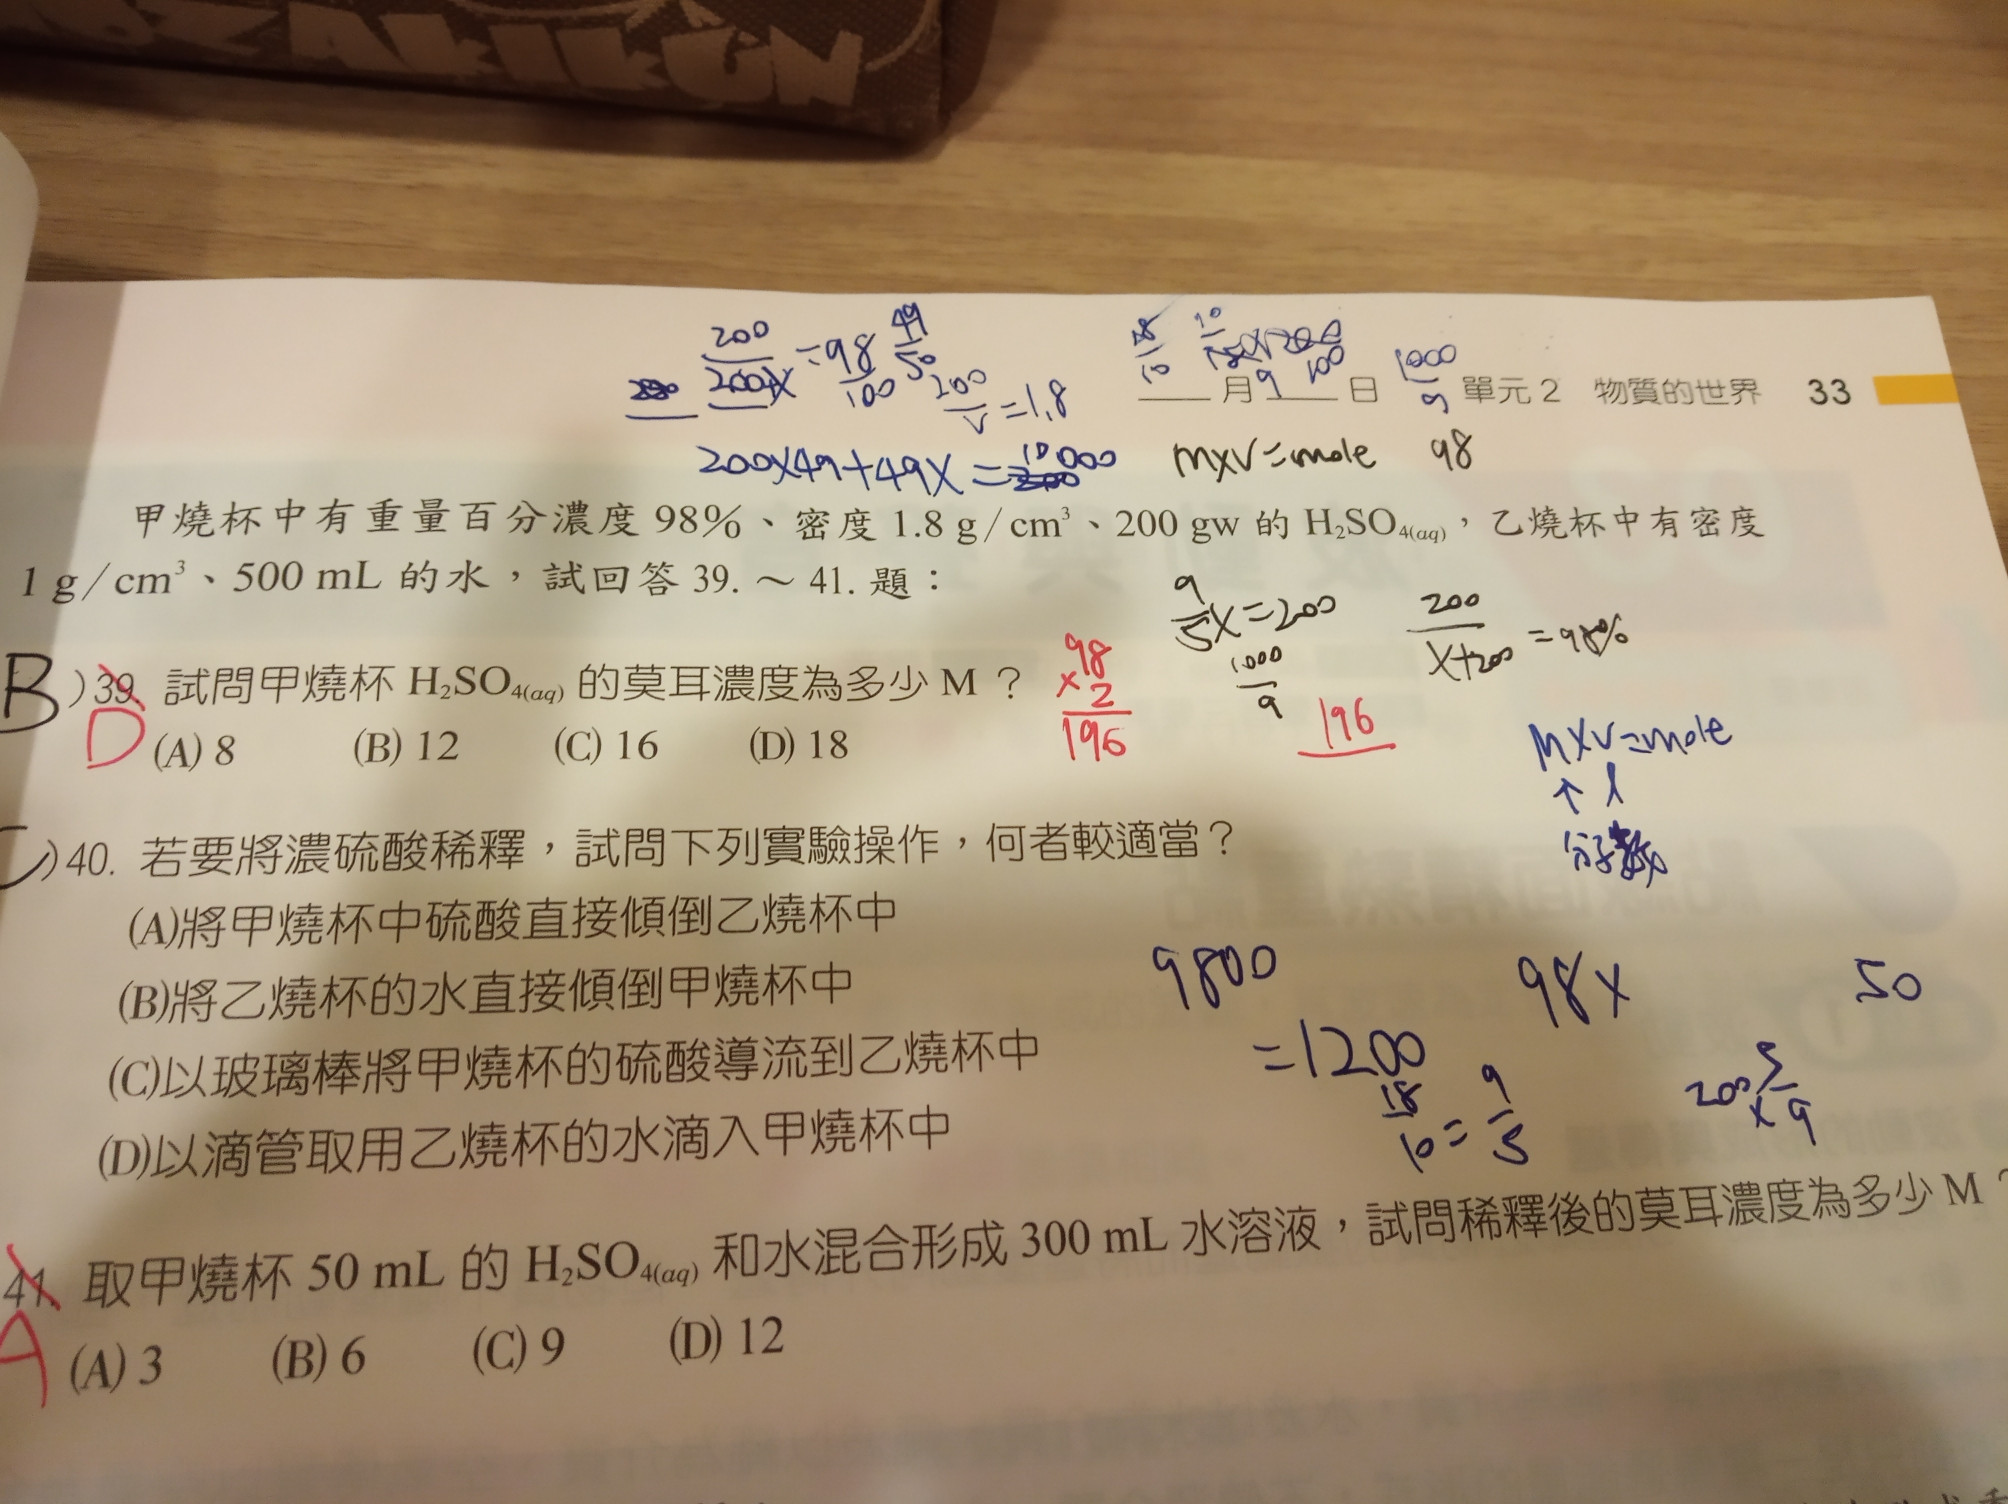 200
49
200+x = 98
100
50
200
v = 1.8
1000
9
月 日 單元2 物質的世界 33
200x49+49x = 10000
MxV=mole 98
甲燒杯中有重量百分濃度 98%、密度 1.8 g/cm³、200 gw 的 H₂SO₄(aq),乙燒杯中有密度
1 g/cm³、500 mL 的水,試回答 39. ~ 41. 題:
9
5 x=200
200
x+200 =98%
1000
9
98
x 2
196
196
B )39. 試問甲燒杯 H₂SO₄(aq) 的莫耳濃度為多少 M ?
D (A) 8 (B) 12 (C) 16 (D) 18
MxV=mole
分子數
C )40. 若要將濃硫酸稀釋,試問下列實驗操作,何者較適當?
(A)將甲燒杯中硫酸直接傾倒乙燒杯中
(B)將乙燒杯的水直接傾倒甲燒杯中
9800 98x 50
(C)以玻璃棒將甲燒杯的硫酸導流到乙燒杯中
=1200
18
10 = 9
5
200 x 5
9
(D)以滴管取用乙燒杯的水滴入甲燒杯中
41. 取甲燒杯 50 mL 的 H₂SO₄(aq) 和水混合形成 300 mL 水溶液,試問稀釋後的莫耳濃度為多少 M ?
A (A) 3 (B) 6 (C) 9 (D) 12